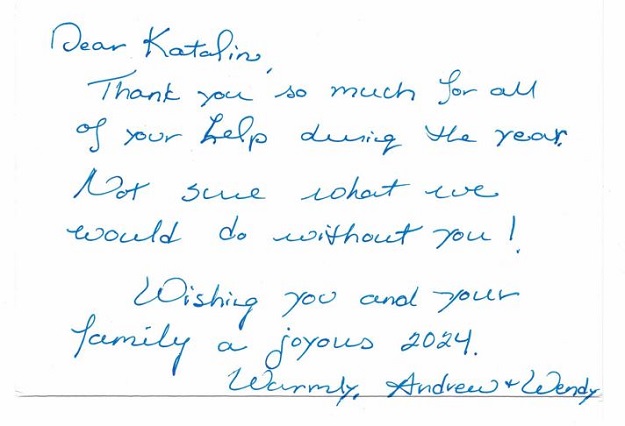 Dear Katalin,
Thank you so much for all
of your help during the year.
Not sure what we
would do without you!
Wishing you and your
family a joyous 2024.
Warmly, Andrew + Wendy